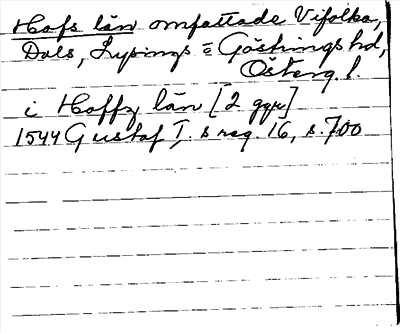 Hofs län omfattade Vifolka,
Dals, Lysings & Göstrings hd,
Österg. l.
i Hoffz län [2 ggr]
1544 Gustaf I. s reg. 16, s. 700